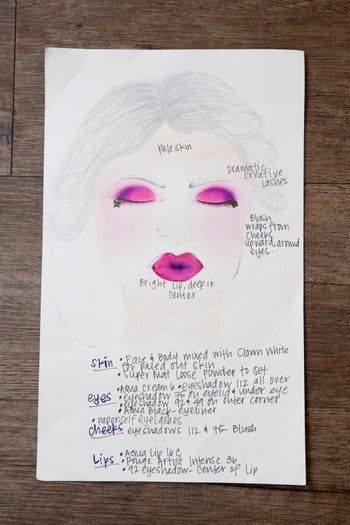 pale skin
Dramatic
creative
lashes
Blush
wraps from
cheeks
upward, around
eyes.
Bright lip, deep in
center
Skin • Face & Body mixed with Clown White
for paled out skin
• Super Mat Loose Powder to Set
eyes • Aqua Cream 6 • eyeshadow 112 all over
• eyeshadow 75 on eyelid & under eye
• Eyeshadow 92 & 49 on outer corner
• Aqua Black - eyeliner
• Paperself eyelashes
Cheeks eyeshadows 112 & 75 Blush
Lips • Aqua Lip 16C
• Rouge Artist Intense 36
• 92 eyeshadow - Center of Lip